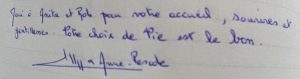 à Anita et Rob pour votre accueil, sourires et
gentillesse. Votre choix de vie est le bon.
Anne-Pascale